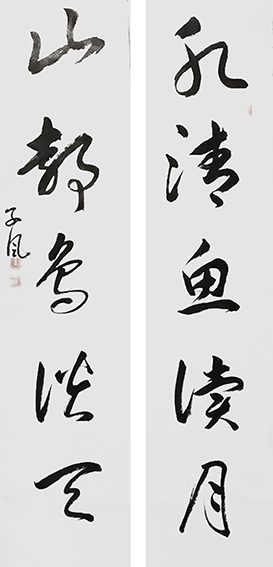 水清鱼读月
山静鸟谈天
子风